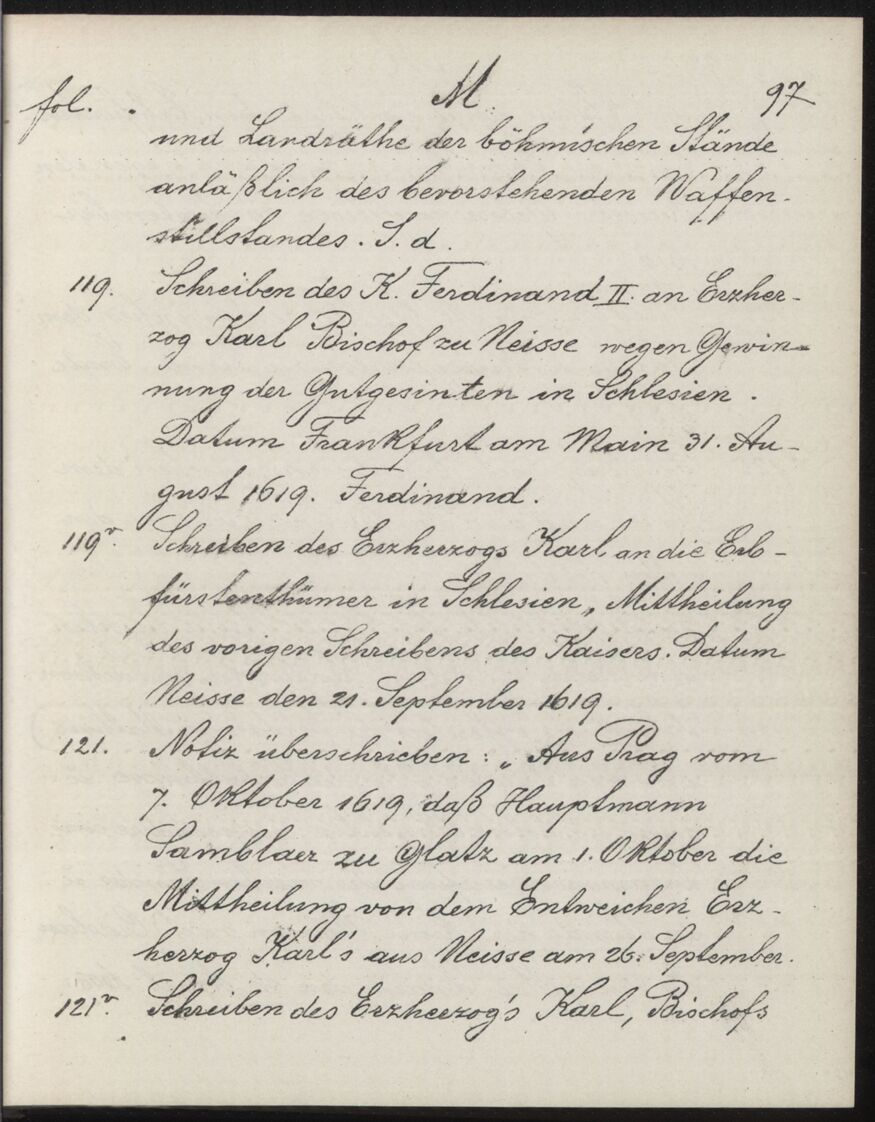 fol. M. 97
und Landräthe der böhmischen Stände
anläßlich des bevorstehenden Waffen-
stillstandes. S. d.
119. Schreiben des K. Ferdinand II. an Erzher-
zog Karl Bischof zu Neisse wegen Gewin-
nung der Gutgesinten in Schlesien.
Datum Frankfurt am Main 31. Au-
gust 1619. Ferdinand.
119v. Schreiben des Erzherzogs Karl an die Erb-
fürstenthümer in Schlesien, Mittheilung
des vorigen Schreibens des Kaisers. Datum
Neisse den 21. September 1619.
121. Notiz überschrieben: „Aus Prag vom
7. Oktober 1619, daß Hauptmann
Samblaer zu Glatz am 1. Oktober die
Mittheilung von dem Entweichen Erz-
herzog Karl's aus Neisse am 26. September.
121v. Schreiben des Erzherzog's Karl, Bischofs